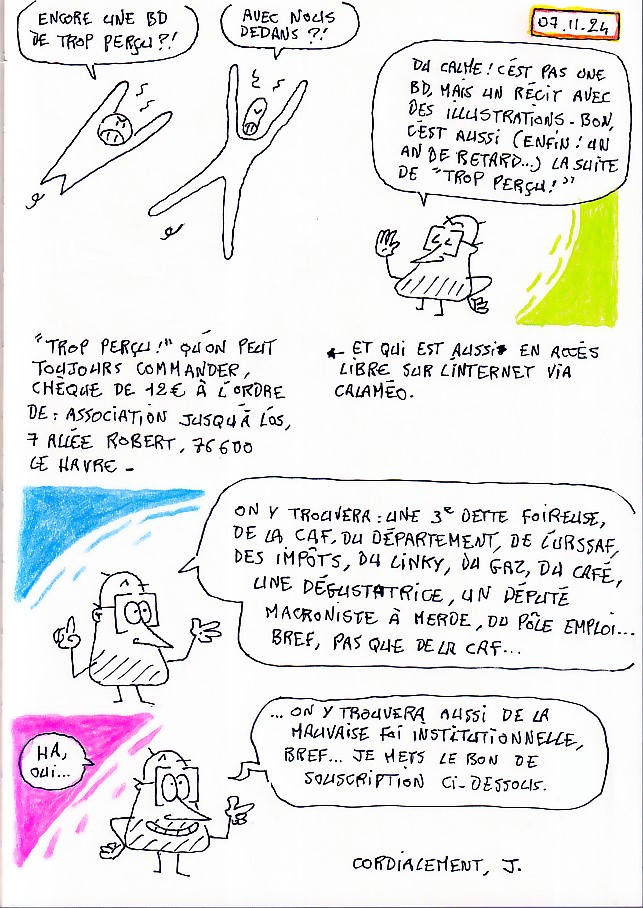 ENCORE UNE BD
DE TROP PERÇU?!
AVEC NOUS
DEDANS ?!
07.11.24
DU CALME! C'EST PAS UNE
BD, MAIS UN RÉCIT AVEC
DES ILLUSTRATIONS. BON,
C'EST AUSSI (ENFIN! UN
AN DE RETARD...) LA SUITE
DE "TROP PERÇU!"
"TROP PERÇU!" QU'ON PEUT
TOUJOURS COMMANDER,
CHÈQUE DE 12€ À L'ORDRE
DE: ASSOCIATION JUSQU'À L'OS,
7 ALLÉE ROBERT, 76600
LE HAVRE -
← ET QUI EST AUSSI EN ACCÈS
LIBRE SUR L'INTERNET VIA
CALAMÉO.
ON Y TROUVERA: UNE 3e DETTE FOIREUSE,
DE LA CAF, DU DÉPARTEMENT, DE L'URSSAF,
DES IMPÔTS, DU LINKY, DU GAZ, DU CAFÉ,
UNE DÉGUSTATRICE, UN DÉPUTÉ
MACRONISTE À MERDE, DU PÔLE EMPLOI...
BREF, PAS QUE DE LA CAF...
... ON Y TROUVERA AUSSI DE LA
MAUVAISE FOI INSTITUTIONNELLE,
BREF... JE METS LE BON DE
SOUSCRIPTION CI-DESSOUS.
HA,
OUI...
CORDIALEMENT, J.